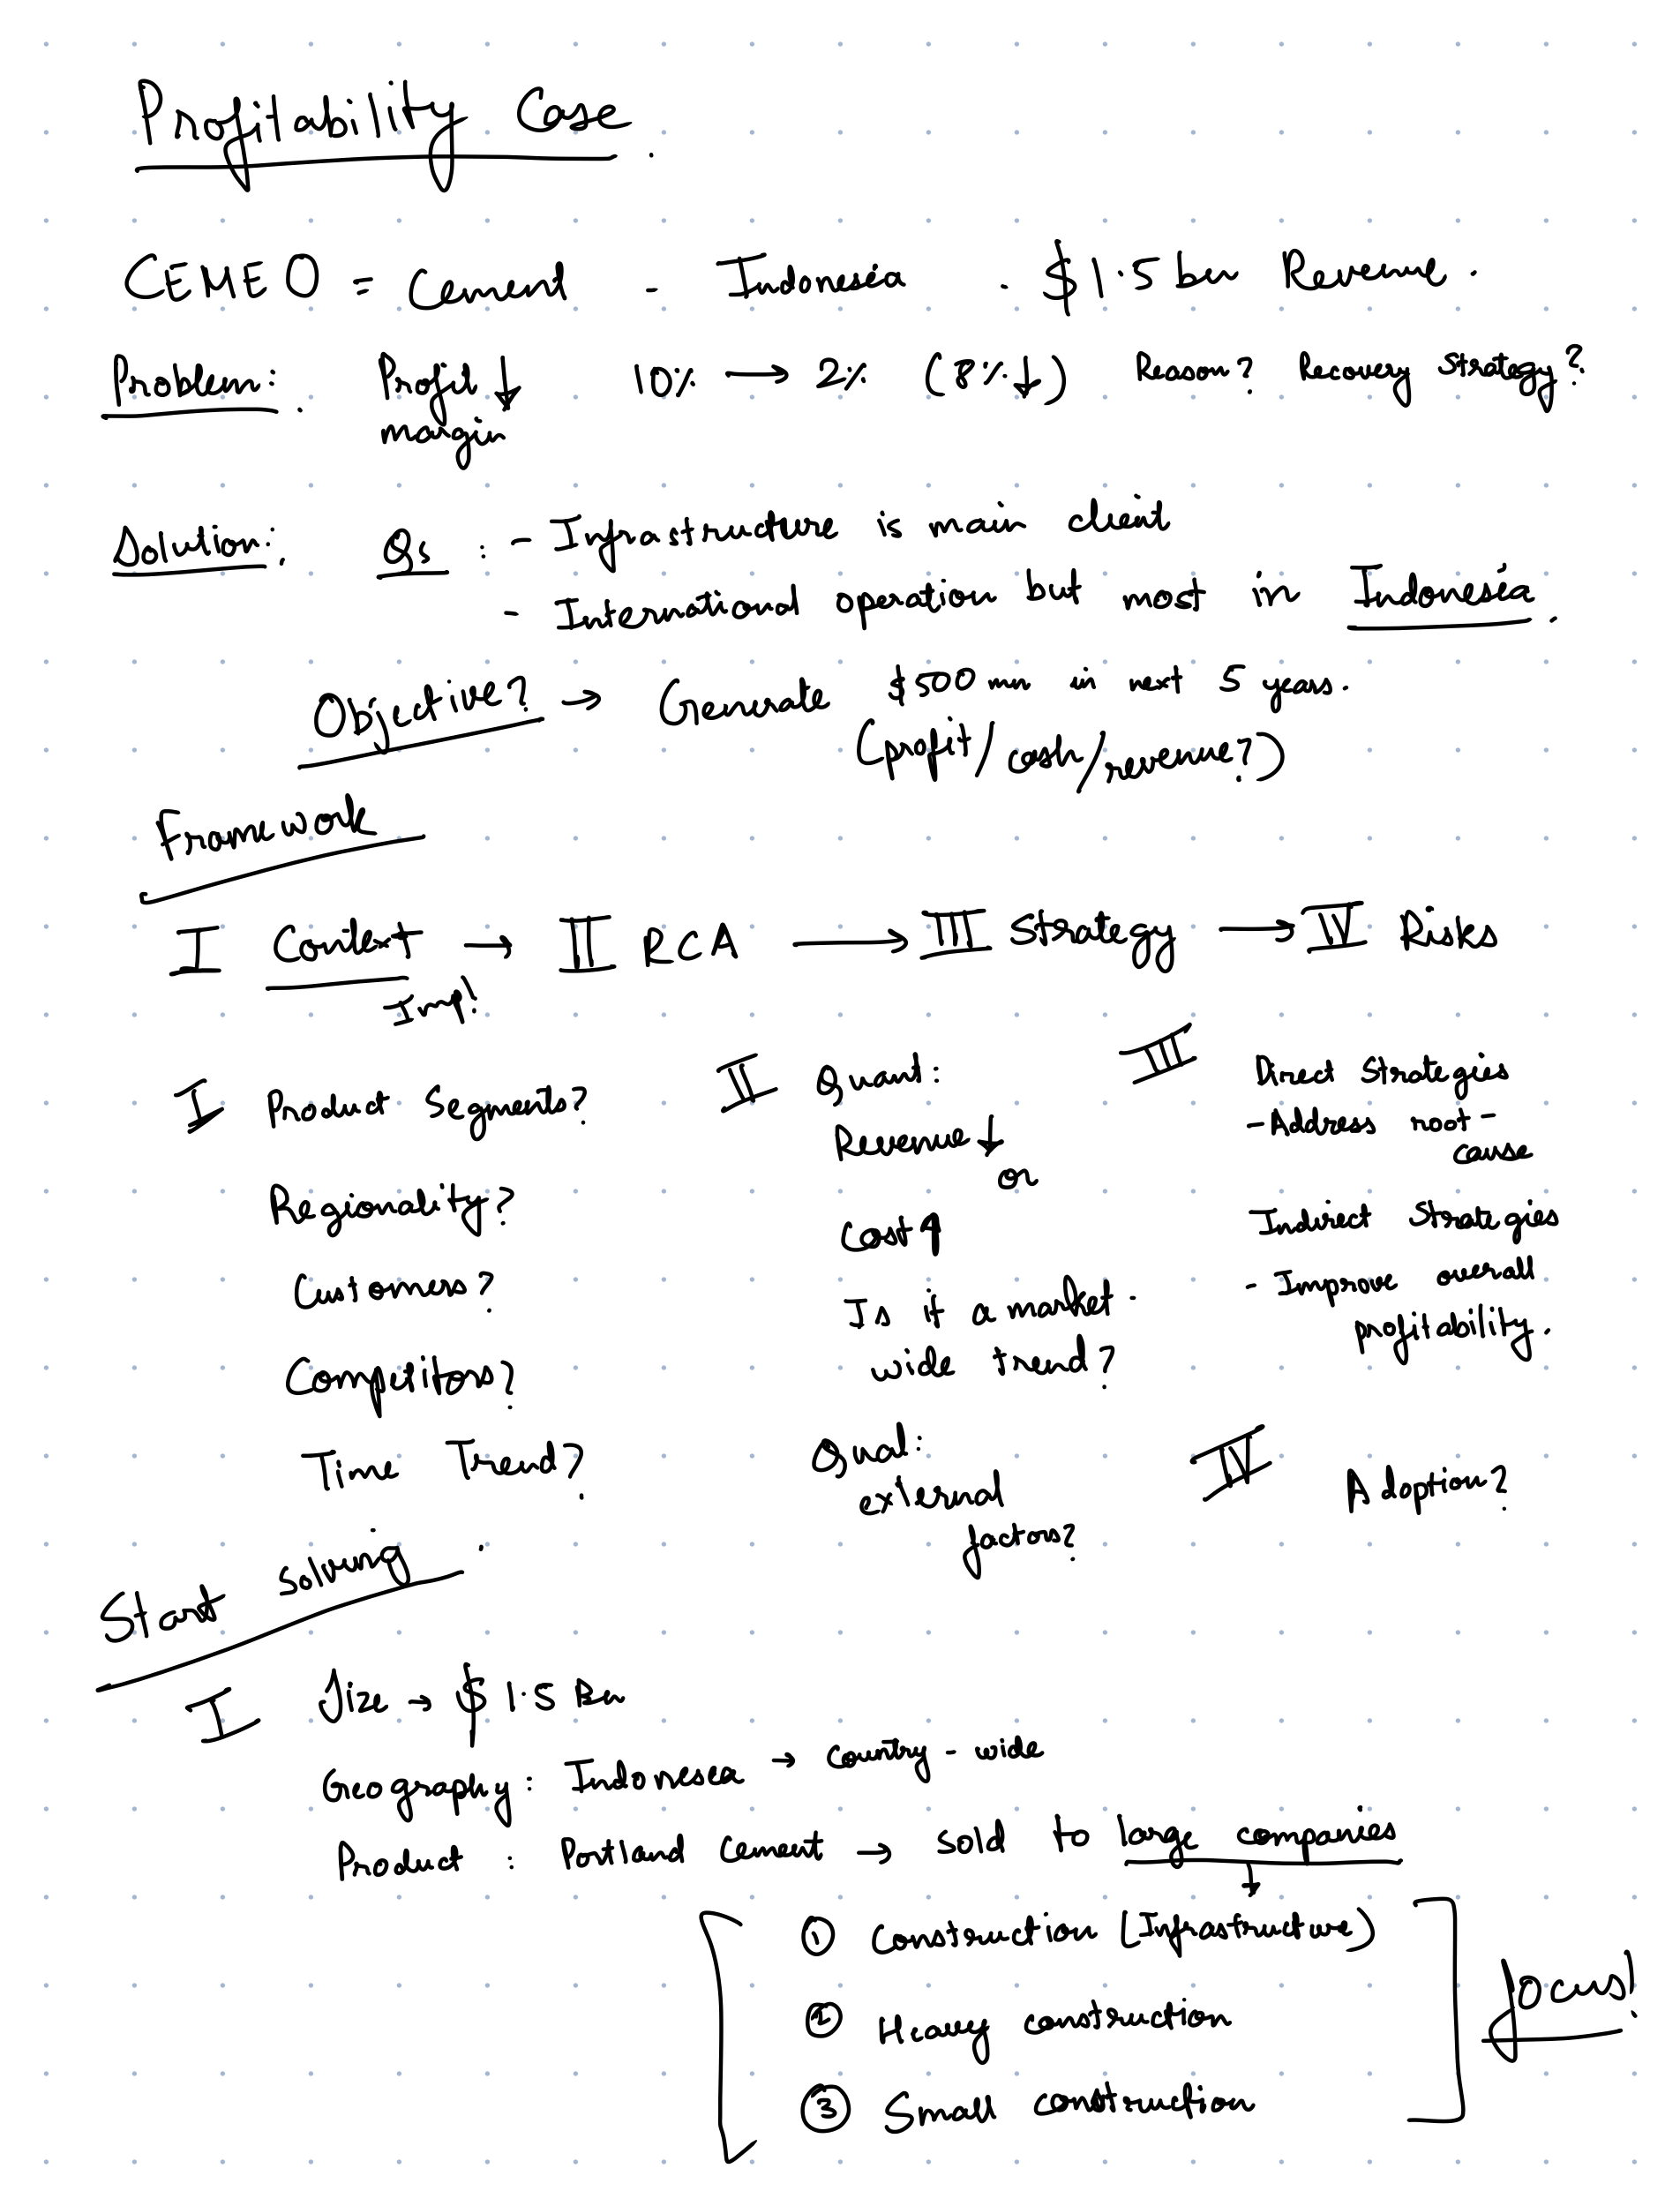 Profitability Case.
CEMEO = Cement - Indonesia . $1.5 bn Revenue.
Problem: Profit ↓ 10% → 2% (8%↓) Reason? Recovery Strategy?
margin
Solution: Qs : - Infrastructure is main client
- International operation but most in Indonesia.
Objective? → Generate $500 mn in next 5 years.
(profit/cash/revenue?)
Framework
I Context → II RCA → III Strategy → IV Risks
Imp!
I Product Segments?
Regionality?
Customers?
Competitors?
Time Trend?
II Quant:
Revenue ↓
or
Cost ↑
Is it a market-
wide trend?
Qual:
external
factors?
III Direct Strategies
- Address root-
cause
Indirect Strategies
- Improve overall
profitability.
IV Adoption?
Start solving
I Size → $1.5 Bn
Geography: Indonesia → Country-wide
Product : Portland Cement → sold to large companies
↓
① Construction (Infrastructure)
② Heavy construction
③ Small construction
focus!